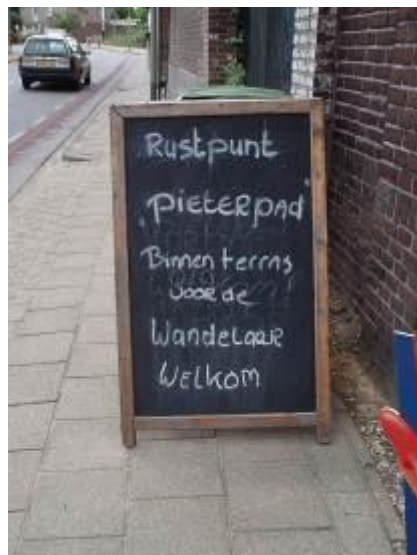 Rustpunt
"Pieterpad"
Binnenterras
voor de
Wandelaar
WELKOM